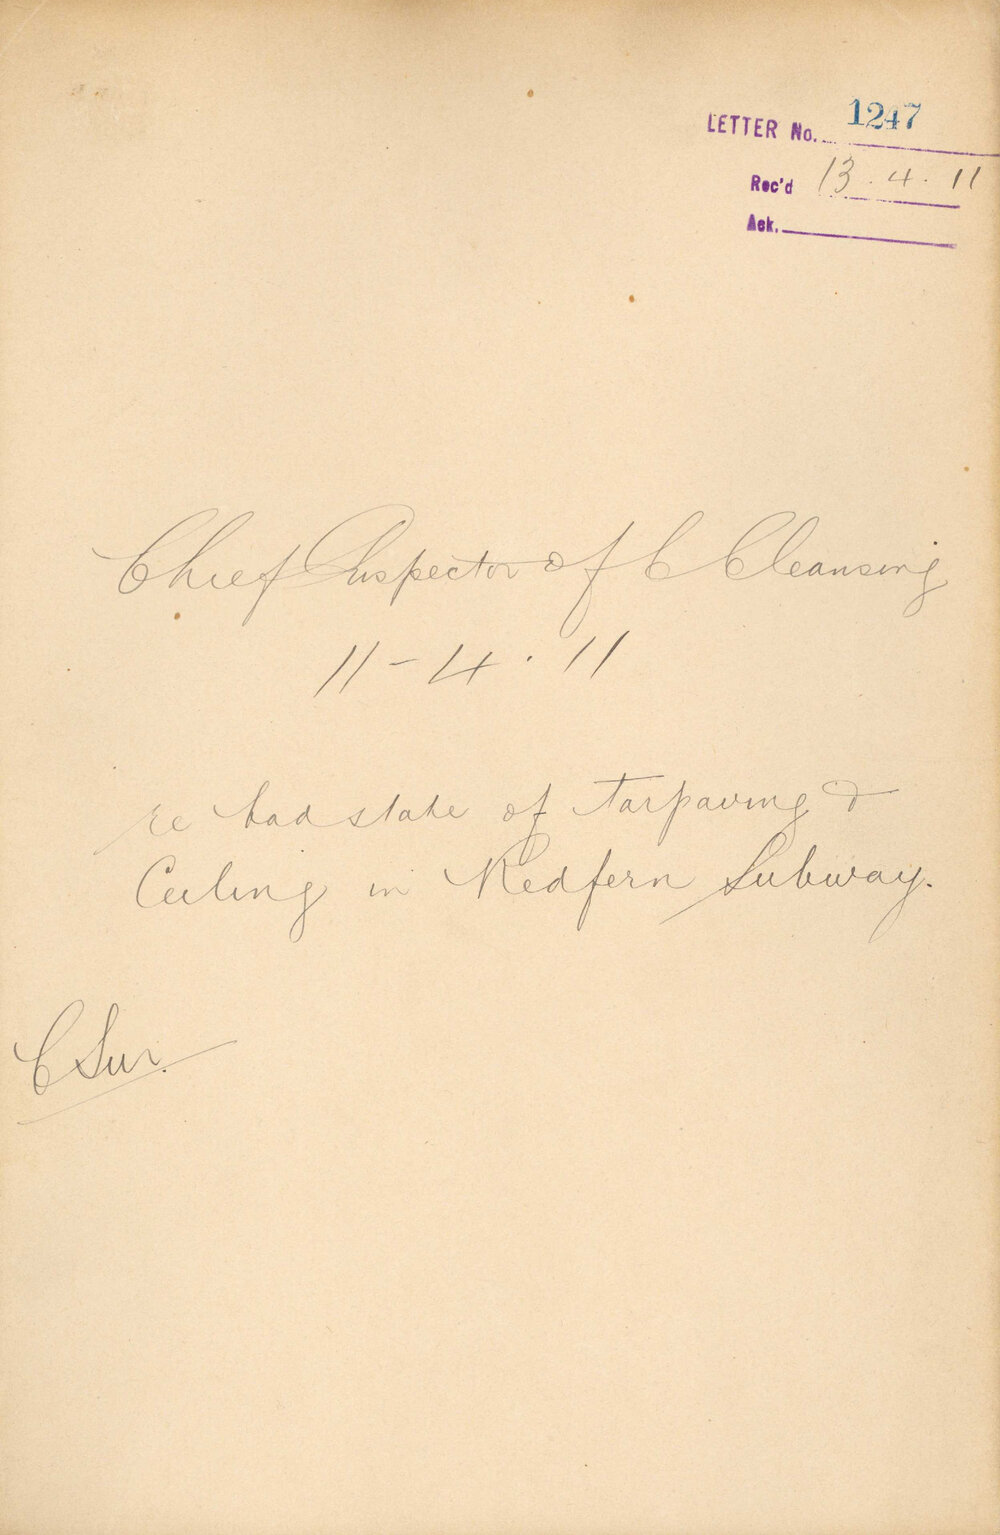 LETTER No. 1247
Rec'd 13.4.11
Ack.
Chief Inspector of C Cleansing
11-4.11
re bad state of Tarpaving &
Ceiling in Redfern Subway.
C Sur.